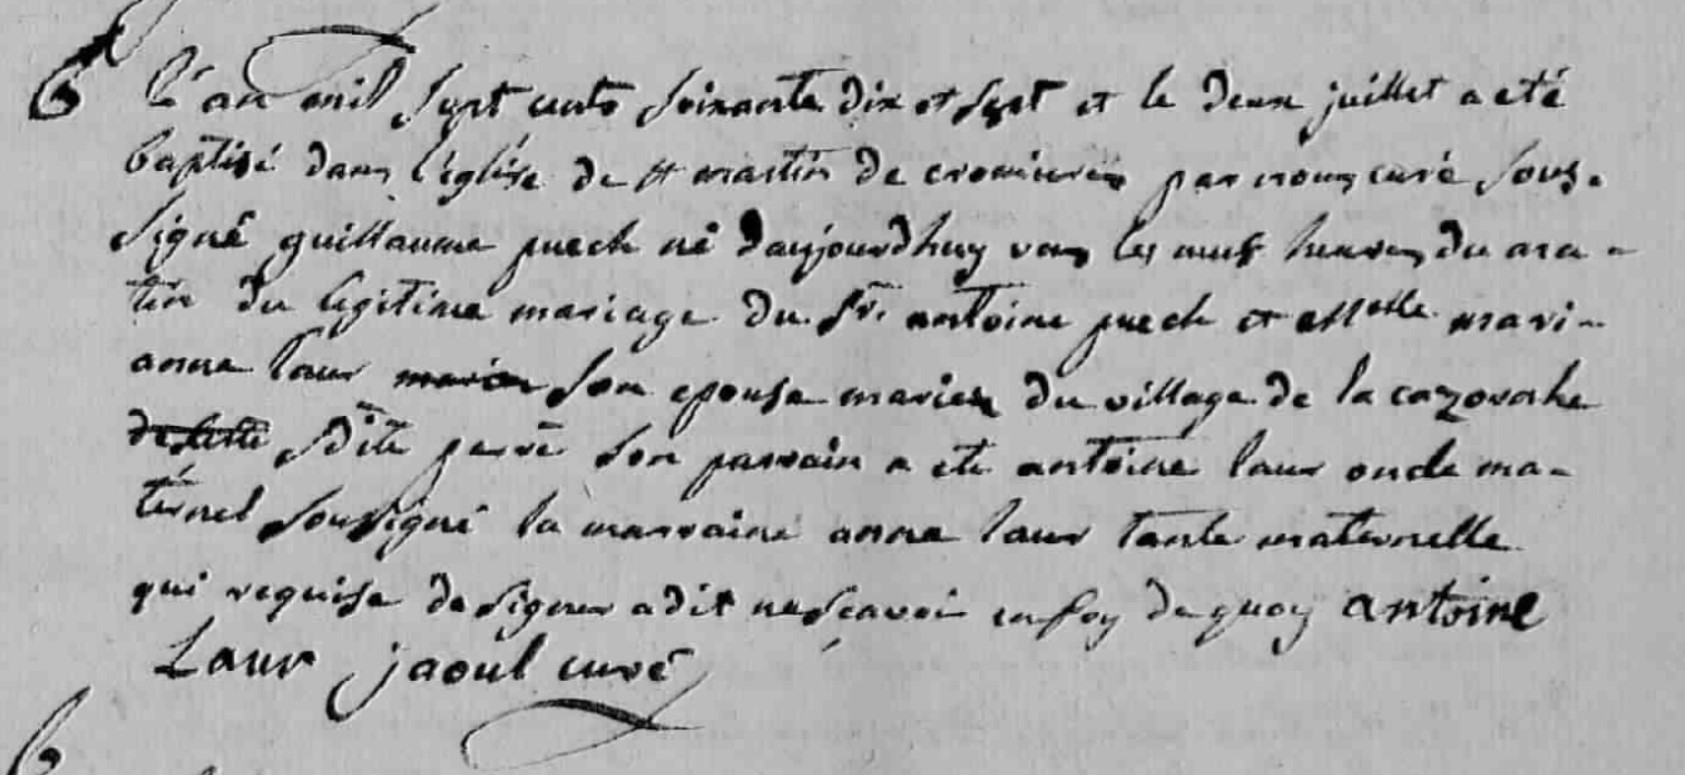 B l'an mil sept cents soixante dix et sept et le deux juillet a eté
baptisé dans l'église de st martin de cromieres par nous curé sous-
signé guillaume puech né d'aujourdhuy vers les neuf heures du ma-
tin du legitime mariage du sr. antoine puech et Melle mari-
anne laur son epouse mariés du village de la cazotte
dite parré son parrain a ete antoine laur oncle ma-
ternel soussigné la marraine anne laur tante maternelle
qui requise de signer a dit ne scavoir en foy de quoy antoine
Laur jaoul curé
B